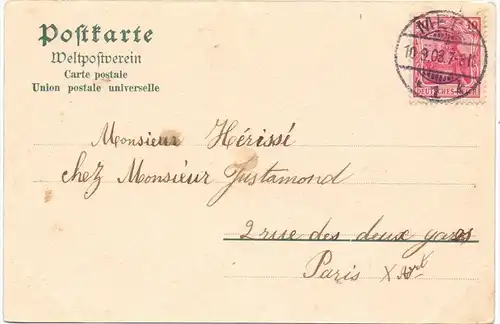 Postkarte
Weltpostverein
Carte postale
Union postale universelle
METZ
10.9.03.7-8
10
DEUTSCHES REICH
Monsieur Hérissé
chez Monsieur Justamond
2 rue des deux gares
Paris X